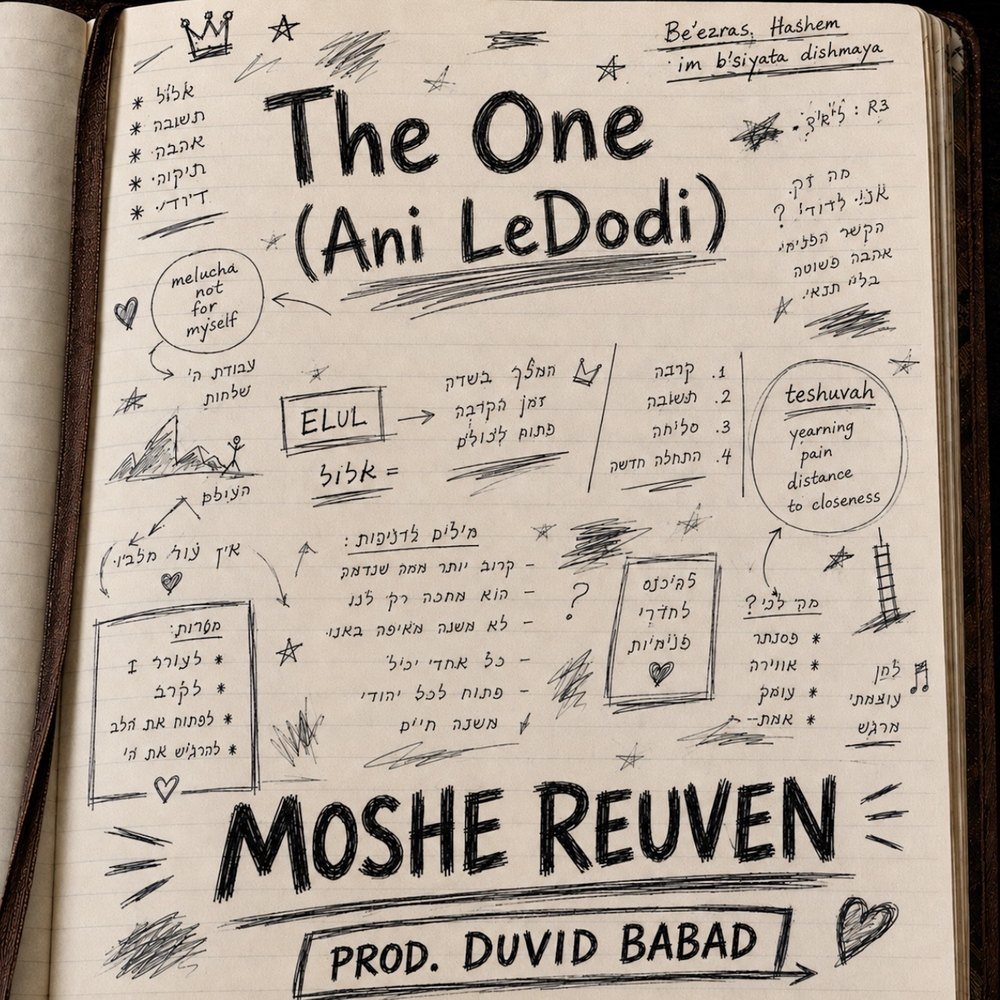 Be'ezras Hashem
im b'siyata dishmaya
The One
(Ani LeDodi)
* אלול
* תשובה
* אהבה
* תיקוהי
R3 :
מה זק.
אני לדודי ?
הקשר הפנימי
אהבה פשוטה
בלי תנאי.
melucha
not
for
myself
עבודת ה'
שלחות
העולם
ELUL
אלול =
המלך בשדה
זמן הקרבה
פתוח לכולם
1. קרבה
2. תשובה
3. סליחה
4. התחלה חדשה
teshuvah
yearning
pain
distance
to closeness
אין עוד מלביו.
מטרות:
* לעורר I
* לקרב
* לפתוח את הלב
* להרגיש את הי
מילים לדניפות :
- קרוב יותר ממה שנדמה
- הוא מחכה רק לנו
- לא משנה מאיפה באנו.
- כל אחדי יכול
- פתוח לכל יהודי
משנה חיים
?
להיכנס
לחדרי
פנימיות
מה לכי ?
* פסנתר
* אווירה
* עומק
* אמת--
לחן
עוצמתי
מרגש
MOSHE REUVEN
PROD. DUVID BABAD